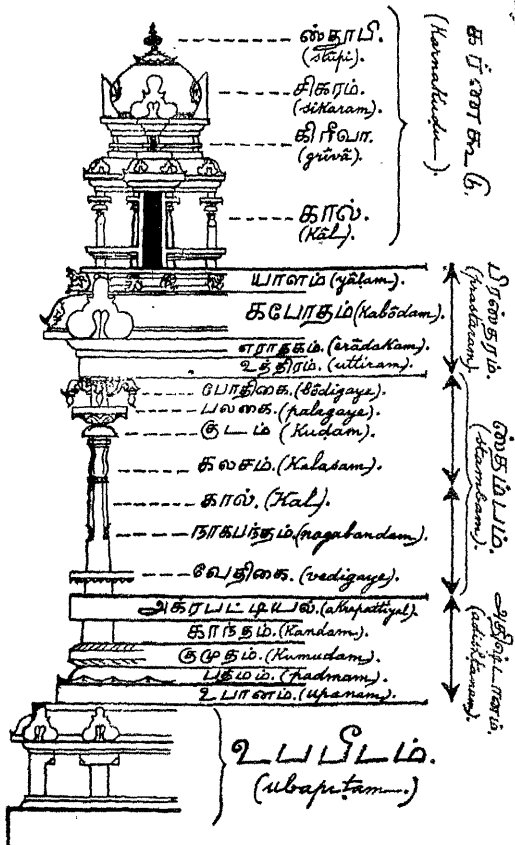 ஸ்தூபி.
(stūpi)
சிகரம்.
(sikaram)
கிரீவா.
(grīvā)
கால்.
(Kāl)
கர்ணகூடு.
(Karnakudu).
யாளம் (yāḷam).
கபோதம் (Kabōdam).
எராதகம். (ērādakam).
உத்திரம். (uttiram).
பிரஸ்தரம்.
(prastaram)
போதிகை. (bōdigaye).
பலகை. (palagaye).
குடம் (Kudam).
கலசம். (Kalasam).
கால். (Kal).
நாகபந்தம். (nagabandam).
வேதிகை. (vedigaye).
ஸ்தம்பம்.
(stambam).
அக்ரபட்டியல். (akrapattiyal).
காந்தம். (Kandam).
குமுதம். (Kumudam).
பத்மம். (padmam).
உபானம். (upanam).
அதிஷ்டானம்.
(adisṭanam).
உபபீடம்.
(ubapīṭam.)